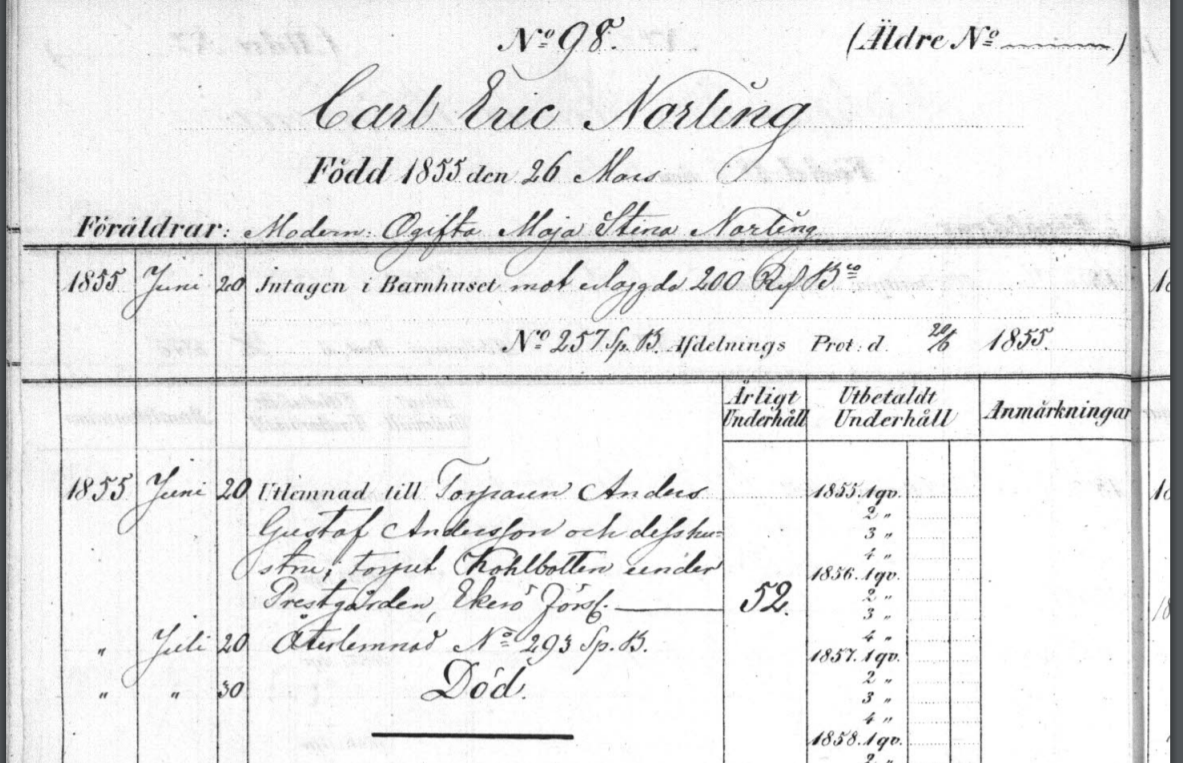 No 98. (Äldre No)
Carl Eric Norling
Född 1855 den 26 Mars
Föräldrar: Modern: Ogifta Maja Stina Norling
1855 Juni 20 Intagen i Barnhuset mot erlaggda 200 Rd Bco
No 257 Sp. B. Afdelnings Prot: d. 20/6 1855.
Årligt Underhåll
Utbetaldt Underhåll
Anmärkningar
1855 Juni 20 Utlemnad till Torparen Anders
Gustaf Andersson och dess hu=
stru, torpet Kohlbotten under
Prestgården, Ekerö Förs. 52.
" Juli 20 Återlemnad No 293 Sp. B.
" " 30 Död.
1855. 1 qv.
2 "
3 "
4 "
1856. 1 qv.
2 "
3 "
4 "
1857. 1 qv.
2 "
3 "
4 "
1858. 1 qv.
2 "